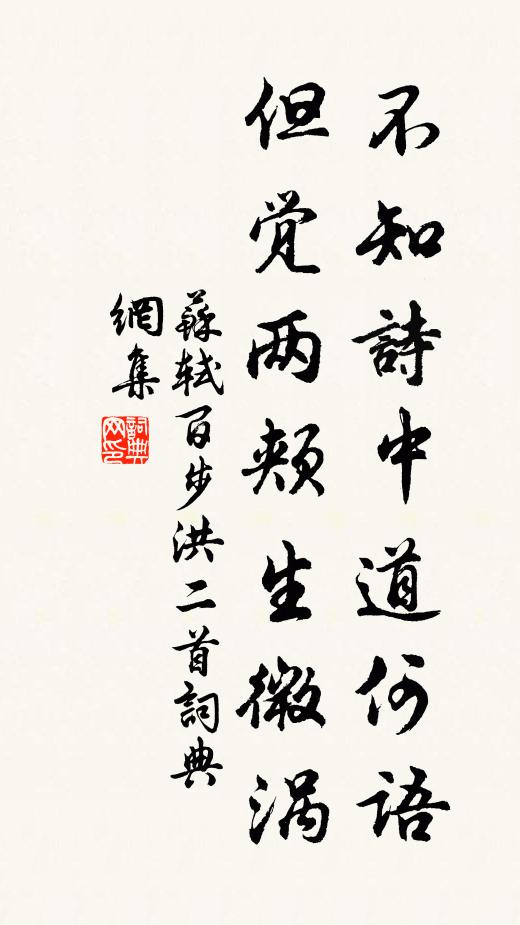 不知詩中道何語
但觉两颊生微涡
蘇軾百步洪二首詞典
網集
詞典
网印